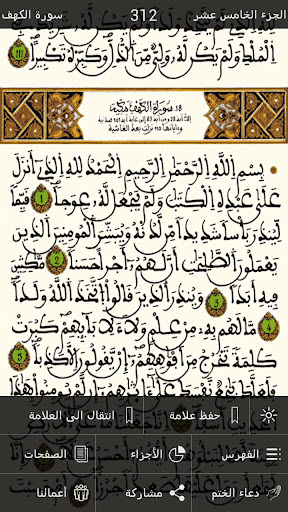 الجزء الخامس عشر 312 سورة الكهف
الْمُلْكِ وَلَمْ يَكُن لَّهُ وَلِيٌّ مِّنَ الذُّلِّ وَكَبِّرْهُ تَكْبِيرًا
18 سورة الكهف مكية
بِسْمِ اللَّهِ الرَّحْمَٰنِ الرَّحِيمِ الْحَمْدُ لِلَّهِ الَّذِي أَنزَلَ
عَلَىٰ عَبْدِهِ الْكِتَٰبَ وَلَمْ يَجْعَل لَّهُ عِوَجًا 1 قَيِّمًا
لِّيُنذِرَ بَأْسًا شَدِيدًا مِّن لَّدُنْهُ وَيُبَشِّرَ الْمُومِنِينَ الَّذِينَ
يَعْمَلُونَ الصَّٰلِحَٰتِ أَنَّ لَهُمْ أَجْرًا حَسَنًا 2 مَّٰكِثِينَ
فِيهِ أَبَدًا 3 وَيُنذِرَ الَّذِينَ قَالُوا اتَّخَذَ اللَّهُ وَلَدًا
4 مَّا لَهُم بِهِ مِنْ عِلْمٍ وَلَا لِآبَائِهِمْ كَبُرَتْ
كَلِمَةً تَخْرُجُ مِنْ أَفْوَٰهِهِمْ إِن يَقُولُونَ إِلَّا كَذِبًا
5
حفظ علامة انتقال الى العلامة
الفهرس الأجزاء الصفحات
دعاء الختم مشاركة أعمالنا